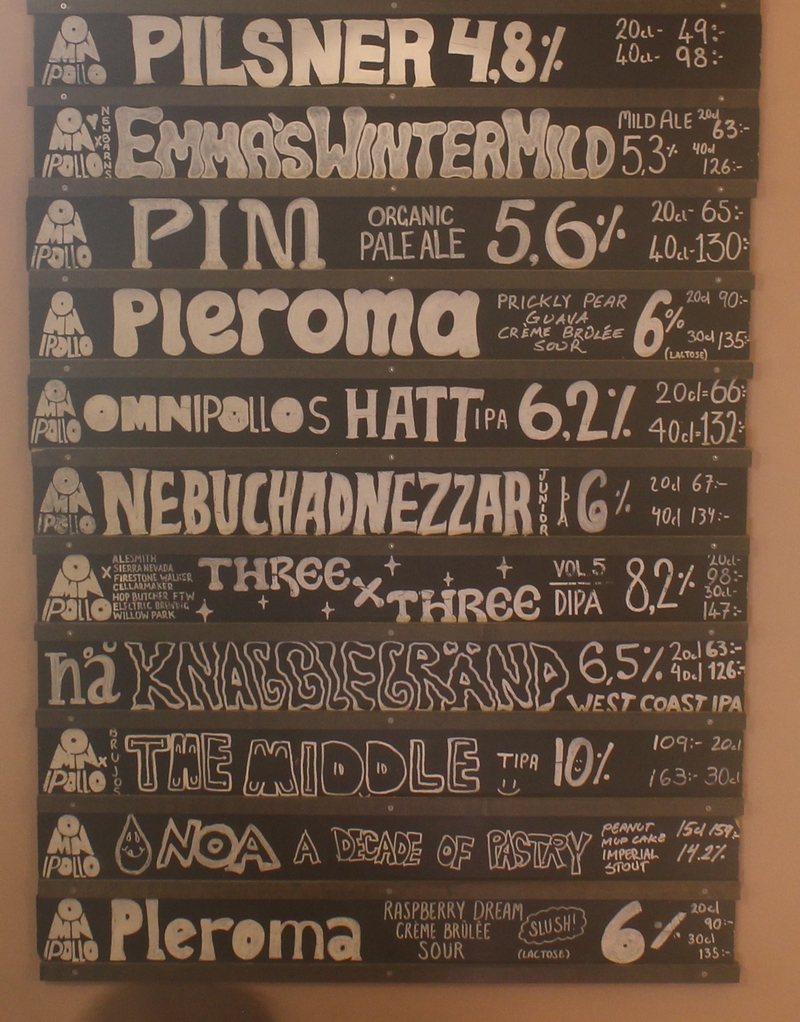 OMNIPOLLO PILSNER 4,8% 20cl- 49:-
40cl- 98:-
OMNIPOLLO X NEWBARNS EMMA'S WINTER MILD MILD ALE 5,3% 20cl 63:-
40cl 126:-
OMNIPOLLO PIM ORGANIC PALE ALE 5,6% 20cl- 65:-
40cl- 130:-
OMNIPOLLO Pleroma PRICKLY PEAR
GUAVA
CRÈME BRÛLÉE
SOUR
6% (LACTOSE) 20cl 90:-
30cl 135:-
OMNIPOLLO OMNIPOLLOS HATT IPA 6,2% 20cl=66:-
40cl=132:-
OMNIPOLLO NEBUCHADNEZZAR JUNIOR IPA 6% 20cl 67:-
40cl 134:-
OMNIPOLLO X ALESMITH
SIERRA NEVADA
FIRESTONE WALKER
CELLARMAKER
HOP BUTCHER FTW
ELECTRIC BREWING
WILLOW PARK
THREE X THREE VOL.5
DIPA
8,2% 20cl-
98:-
30cl-
147:-
nå KNAGGLEGRÄND 6,5% 20cl 63:-
40cl 126:-
WEST COAST IPA
OMNIPOLLO X BRUJOS THE MIDDLE TIPA 10% 109:- 20cl
163:- 30cl
OMNIPOLLO NOA A DECADE OF PASTRY PEANUT
MUD CAKE
IMPERIAL
STOUT
15cl 159:-
14.2%
OMNIPOLLO Pleroma RASPBERRY DREAM
CRÈME BRÛLÉE
SOUR
SLUSH!
(LACTOSE)
6% 20cl
90:-
30cl
135:-